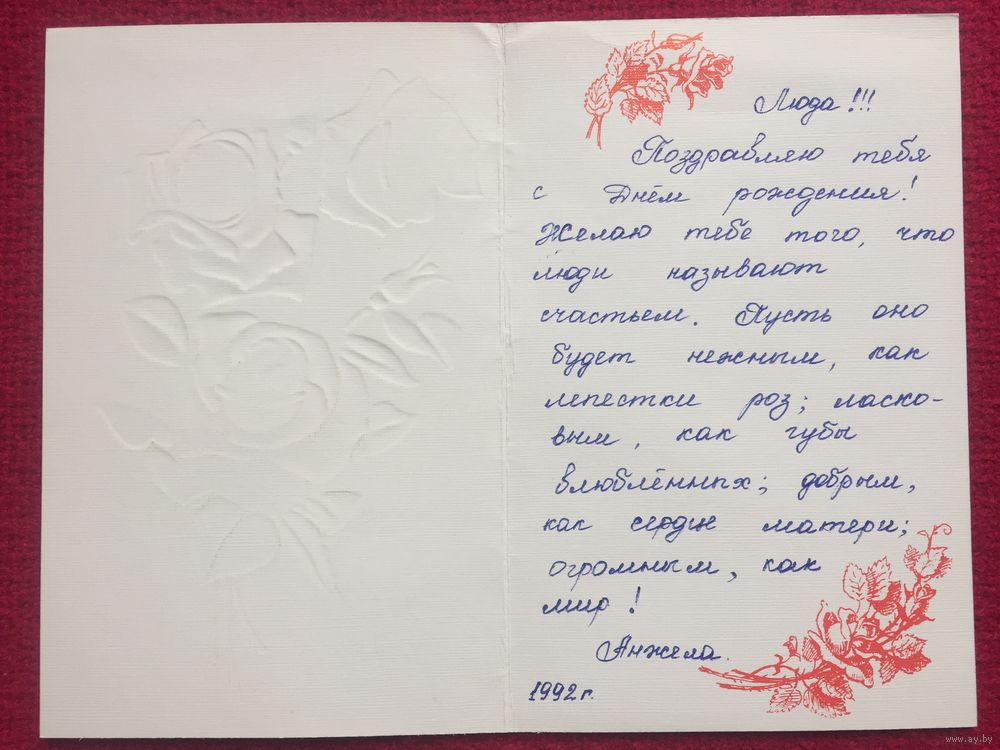 Люда!!!
Поздравляю тебя
с Днём рождения!
Желаю тебе того, что
люди называют
счастьем. Пусть оно
будет нежным, как
лепестки роз; ласко-
вым, как губы
влюблённых; добрым,
как сердце матери;
огромным, как
мир!
Анжела.
1992г.
www.ay.by